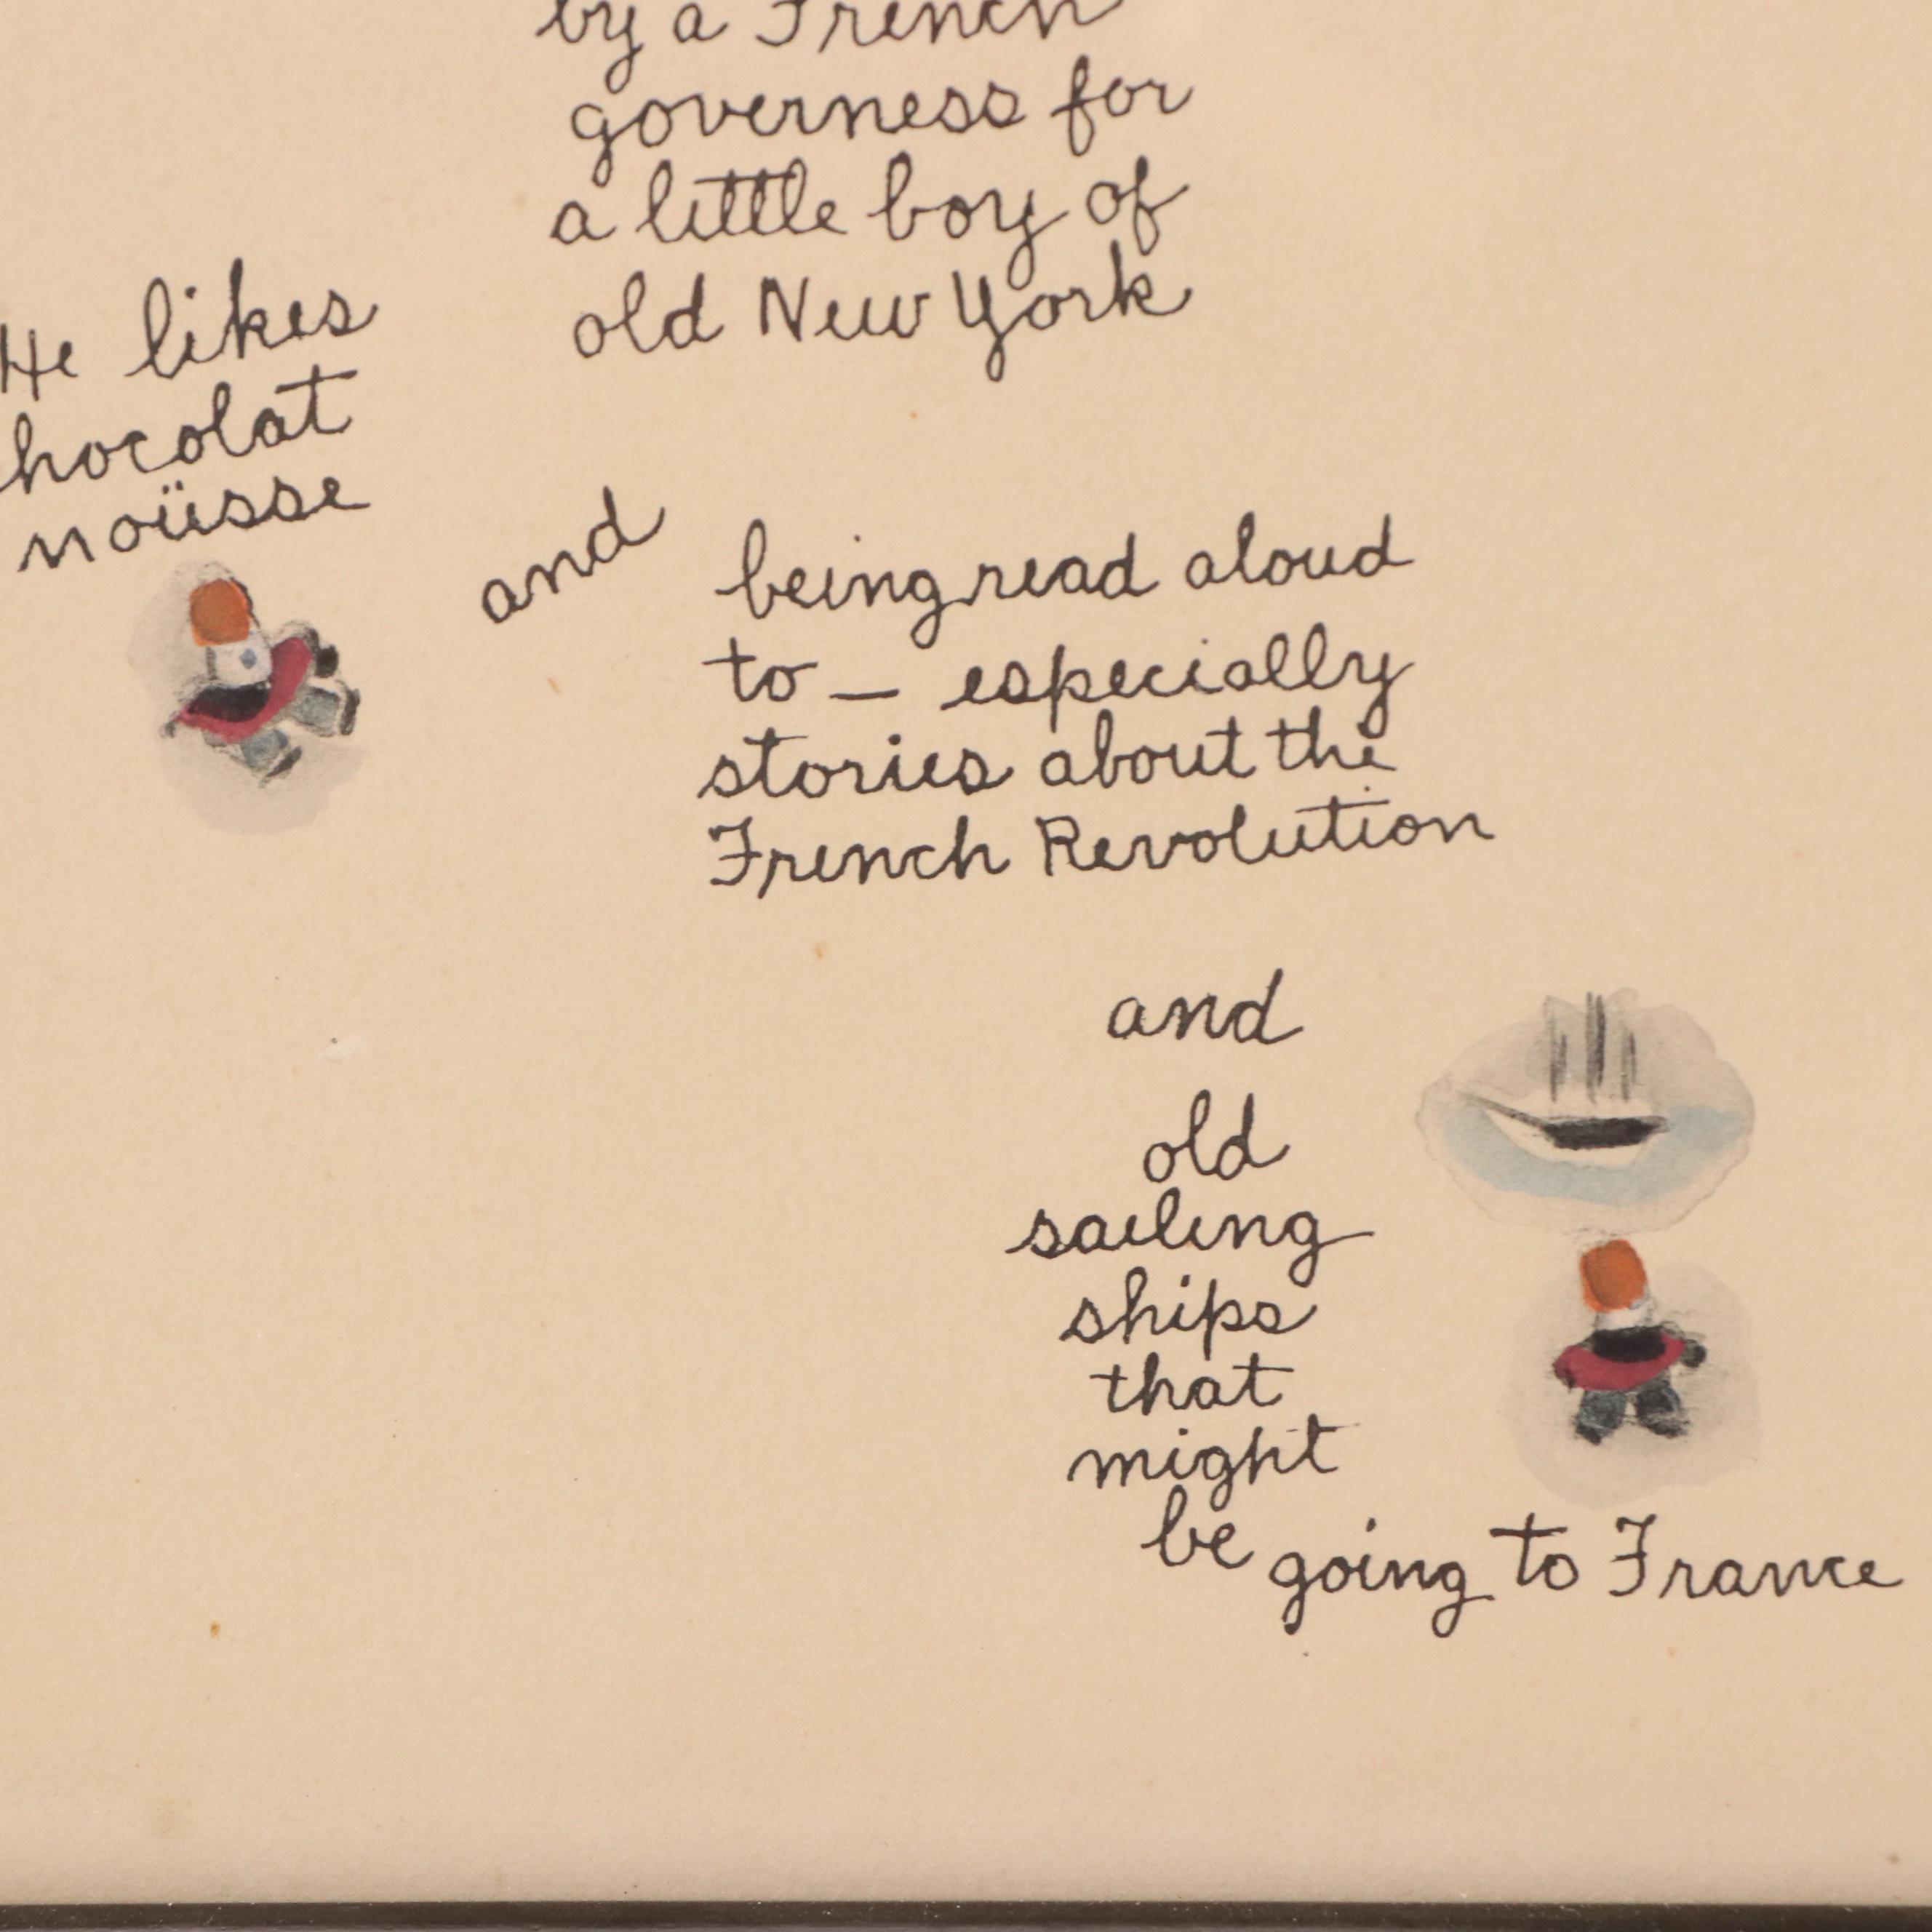 by a French
governess for
a little boy of
old New York
He likes
hocolat
moüsse
and
being read aloud
to — especially
stories about the
French Revolution
and
old
sailing
ships
that
might
be going to France